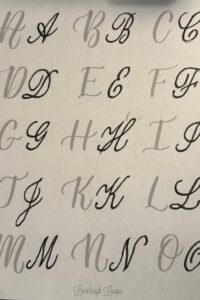 A A B B C C
D D E E F F
G G H H I I
J J K K L L
M M N N O O
Loveleigh Loops